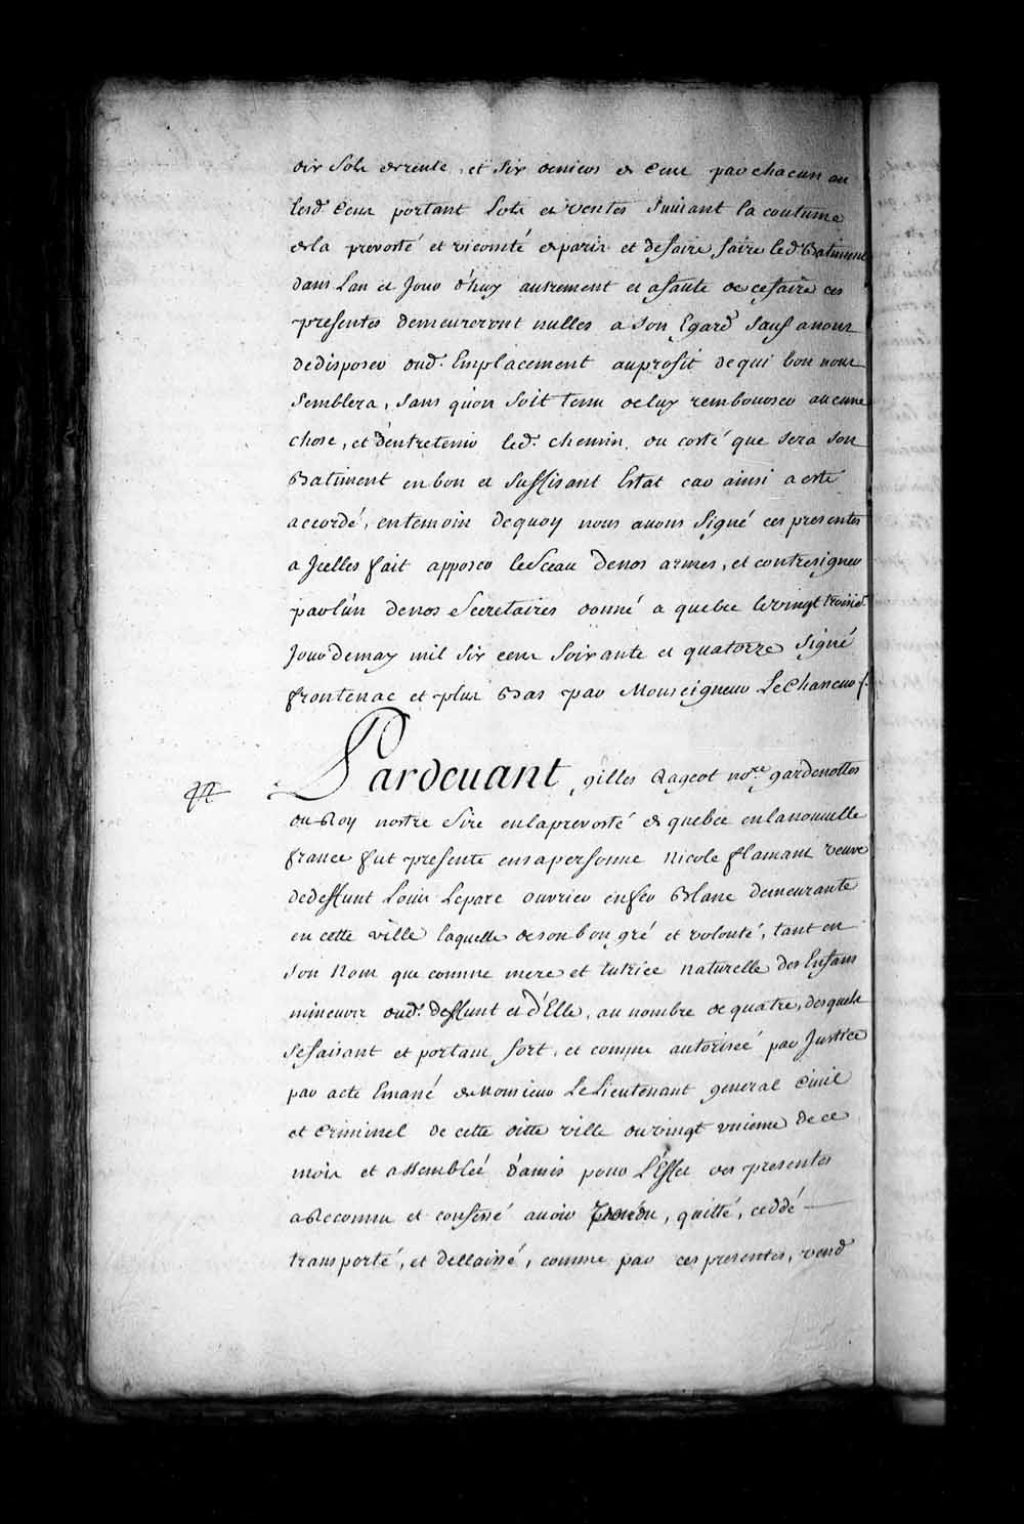 dix Sols de rente, et Six deniers de Cens par chacun an
lesd. Cens portant Lots et Ventes Suivant la coutume
de la prevosté et vicomté de paris et de faire faire led. Batiment
dans Lan et Jour d'huy autrement et a faute de ce faire ces
presentes demeureront nulles a Son Egard Sauf a nous
de disposer dud. Emplacement au profit de qui bon nous
Semblera, Sans quon Soit tenu de luy rembourser aucune
chose, et d'entretenir led. chemin du costé que Sera Son
Batiment en bon et Suffisant Estat car ainsi a esté
accordé, en temoin de quoy nous avons Signé ces presentes
a Jcelles fait apposer le Sceau de nos armes, et contresigner
par l'un de nos Secretaires donné a quebec le vingt troisie.
Jour de may mil Six cens Soixante et quatorze Signé
frontenac et plus Bas par Monseigneur LeChasseur
Pardevant gilles Rageot no.re gardenottes
du Roy nostre Sire en la prevosté de quebec en la nouvelle
france fut presente en sa personne Nicole flamant veuve
de deffunt Louis Lepare ouvrier en fer Blanc demeurante
en cette ville laquelle de son bon gré et volonté, tant en
Son Nom que comme mere et tutrice naturelle des Enfans
mineurs dud. deffunt et d'Elle, au nombre de quatre, desquels
Se faisant et portant fort, et comme autorisée par Justice
par acte Emané de Monsieur Le Lieutenant general Civil
et Criminel de cette ditte ville du vingt unieme de ce
mois et assemblée d'amis pour L'Effet des presentes
a Reconnu et confessé avoir vendu, quitté, ceddé
transporté, et dellaissé, comme par ces presentes, vend